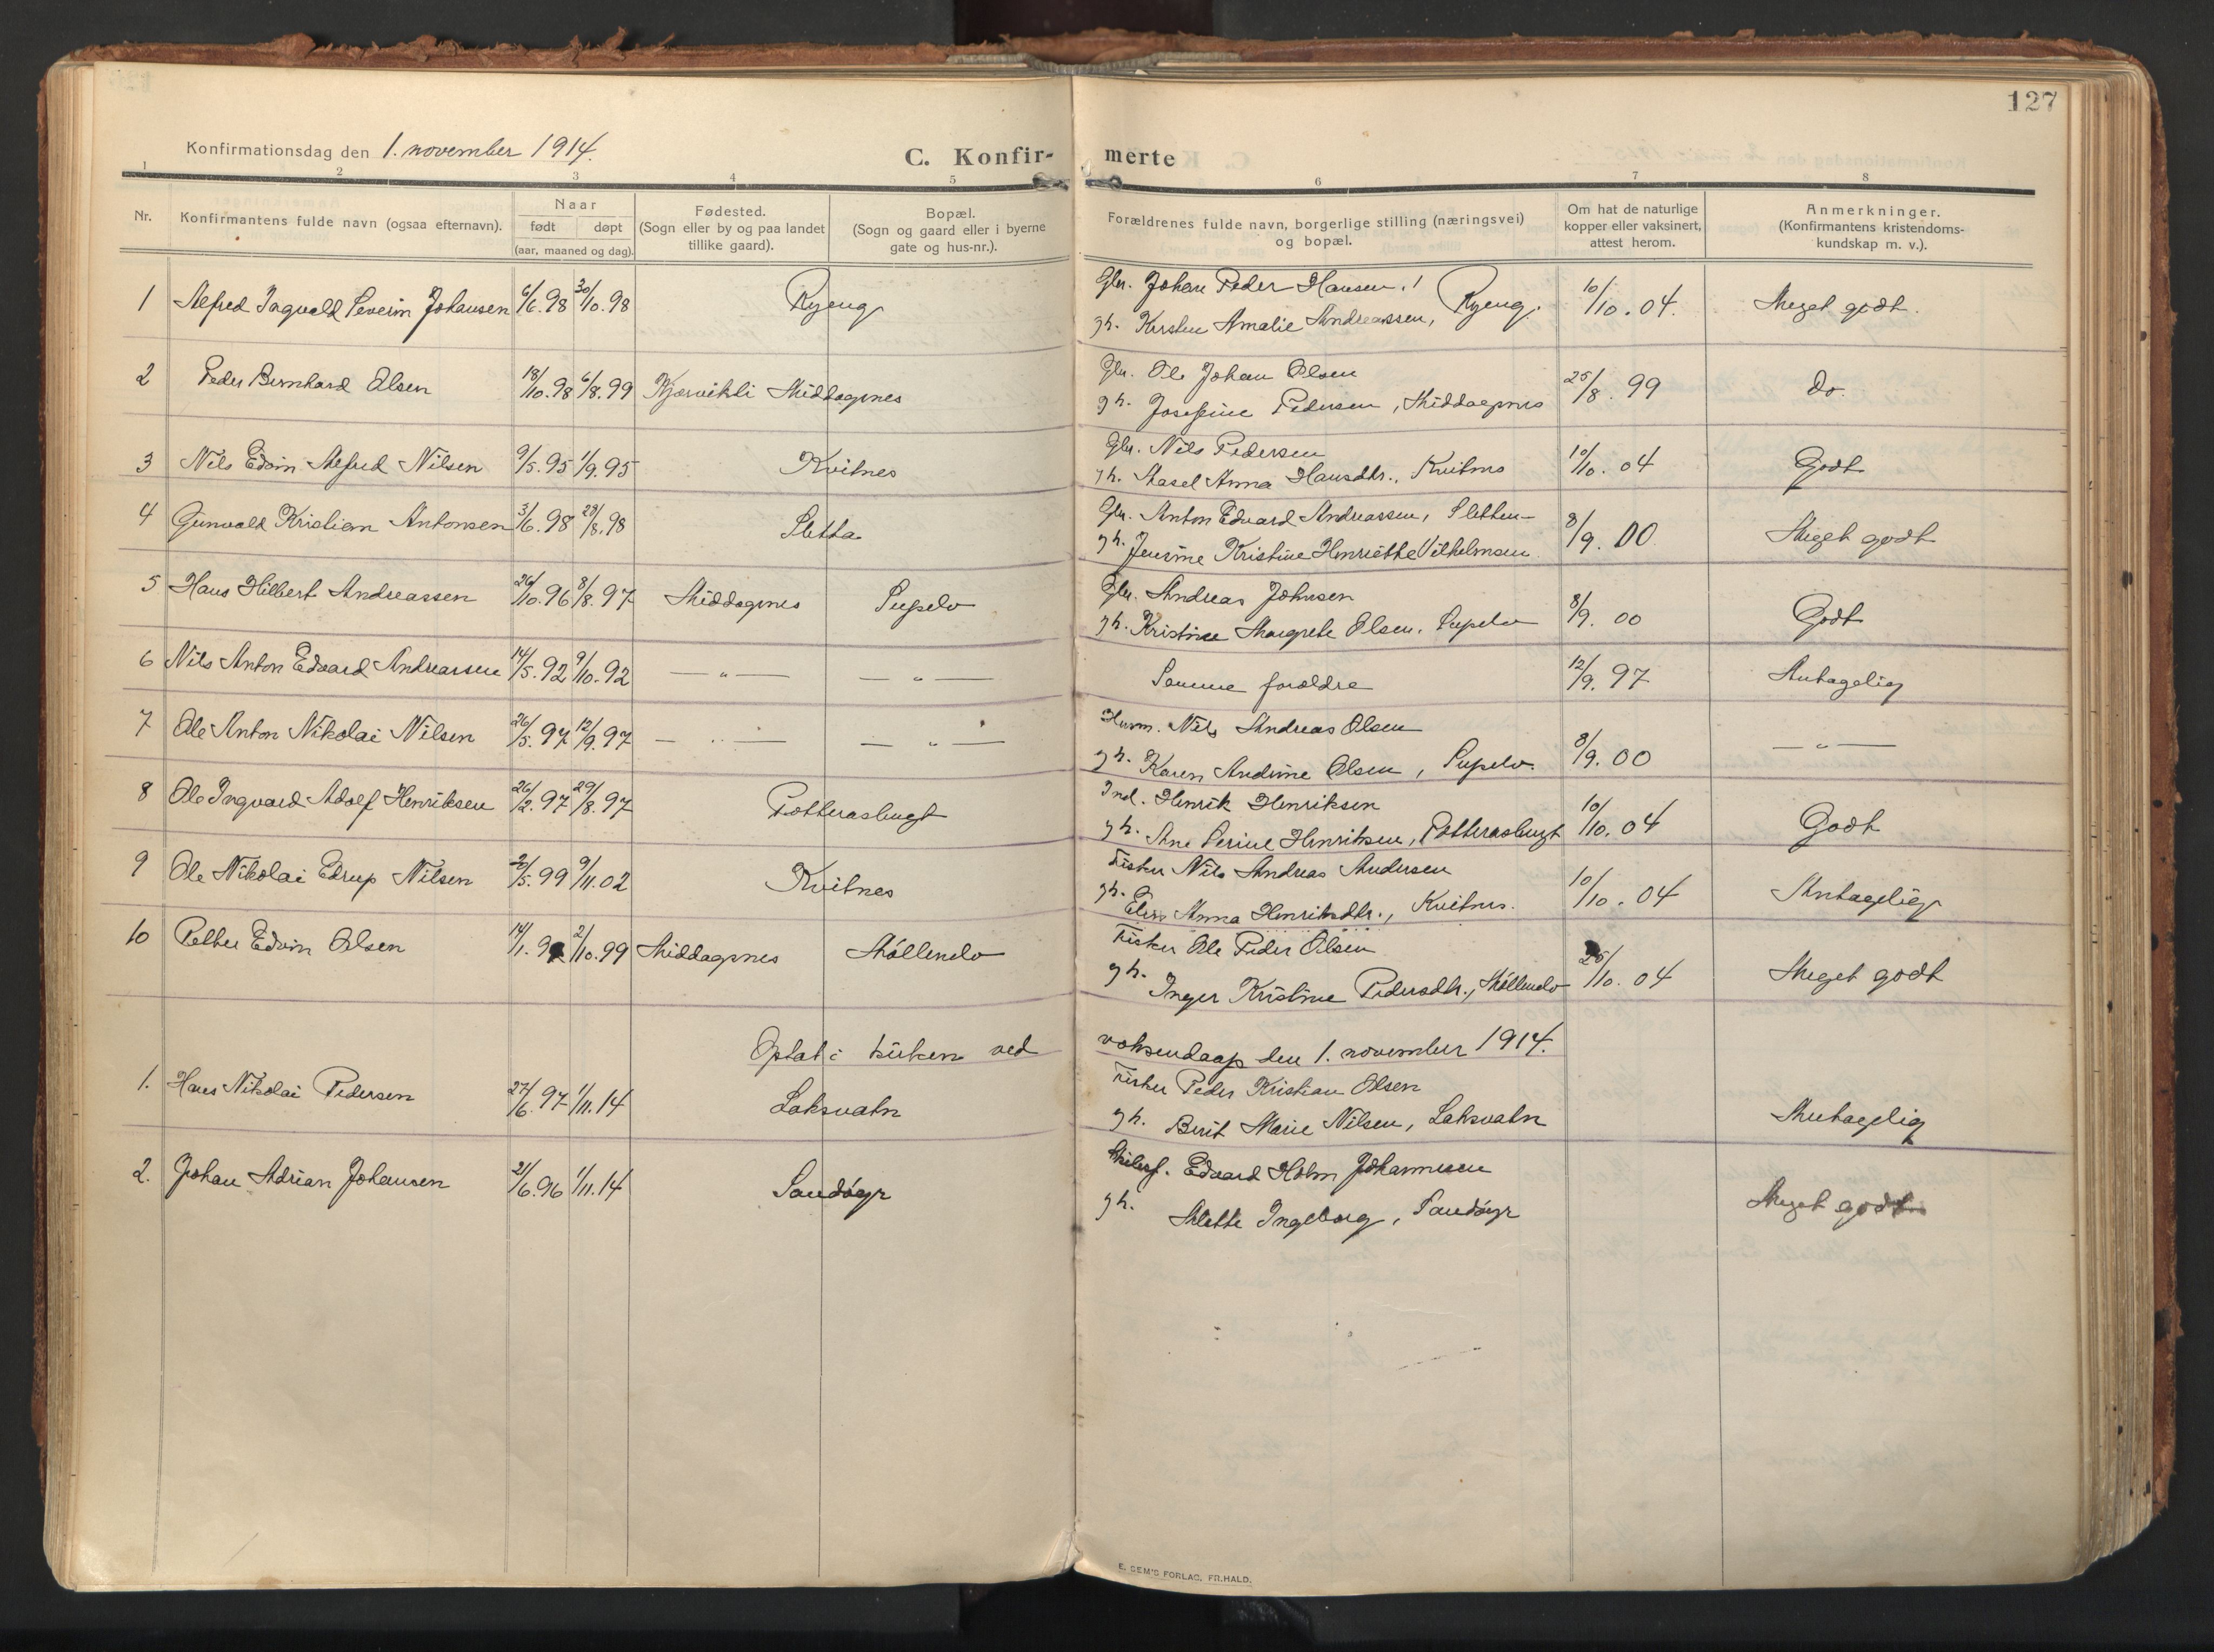 127
Konfirmationsdag den 1. november 1914.
C. Konfir- merte
1 2 3 4 5 6 7 8
Nr. Konfirmantens fulde navn (ogsaa efternavn). Naar født døpt (aar, maaned og dag). Fødested. (Sogn eller by og paa landet tillike gaard). Bopæl. (Sogn og gaard eller i byerne gate og hus-nr.). Forældrenes fulde navn, borgerlige stilling (næringsvei) og bopæl. Om hat de naturlige kopper eller vaksinert, attest herom. Anmerkninger. (Konfirmantens kristendoms-kundskap m. v.).
1 Alfred Ingvald Severin Johansen 6/6.98 30/10.98 Ryeng Gbr. Johan Peder Hansen
gh. Kirsten Amalie Andreassen, Ryeng. 10/10.04. Meget godt.
2 Peder Bernhard Olsen 18/10.98 6/8.99 Kjærvikli Middagsnes Gbr. Ole Johan Olsen
gh. Josefine Pedersen, Middagsnes 25/8.99 Do.
3 Nils Edvin Alfred Nilsen 9/5.95 1/9.95 Kvitnes Gbr. Nils Pedersen
gh. Aasel Anna Hansdtr., Kvitnes 10/10.04 Godt
4 Gunvald Kristian Antonsen 3/6.98 28/8.98 Sletta Gbr. Anton Edvard Andreassen, Sletten
gh. Jensine Kristine Henriette Vilhelmsen 8/9.00 Meget godt
5 Hans Hilbert Andreassen 26/10.96 8/8.97 Middagsnes Supelv Gbr. Andreas Johnsen
gh. Kristine Margrete Olsen, Supelv 8/9.00 Godt
6 Nils Anton Edvard Andreassen 14/5.92 9/10.92 — " — — " — Samme forældre 12/9.97 Antagelig
7 Ole Anton Nikolai Nilsen 26/5.97 12/9.97 — " — — " — Husm. Nils Andreas Olsen
gh. Karen Andrine Olsen, Supelv. 8/9.00 — " —
8 Ole Ingvard Adolf Henriksen 26/2.97 29/8.97 Potterasbugt Ind. Henrik Henriksen
gh. Ane Serine Henriksen, Potterasbugt 10/10.04 Godt
9 Ole Nikolai Edrup Nilsen 30/5.99 9/11.02 Kvitnes Fisker Nils Andreas Andersen
gh. Elen Anna Henriksdtr., Kvitnes. 10/10.04 Antagelig
10 Petter Edvin Olsen 14/1. 2/10.99 Middagsnes Møllenelv Fisker Ole Peder Olsen
gh. Inger Kristine Pedersdtr., Møllenelv /10.04 Meget godt
Optat i kirken ved voksendaap den 1. november 1914.
1. Hans Nikolai Pedersen 27/6.97 1/11.14 Laksvatn Fisker Peder Kristian Olsen
gh. Berit Marie Nilsen, Laksvatn Antagelig
2. Johan Adrian Johansen 21/6.96 1/11.14 Sandøyr Edvard Holm Johannesen
gh. Mette Ingeborg, Sandøyr Meget godt
E. SEM'S FORLAG. FR.HALD.